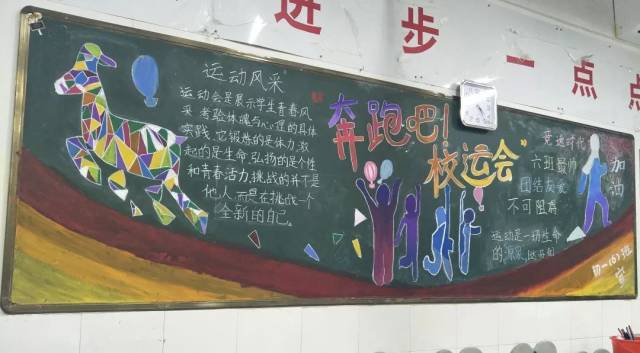 进步一点点
运动风采
运动会是展示学生青春风
采考验体魄与心理的具体
实践,它锻炼的是体力,激
起的是生命,弘扬的是个性
和青春活力,挑战的并不是
他人,而是在挑战一个
全新的自己。
奔跑吧!
校运会
竞选时代
六班最帅
团结友爱
不可阻高
加油
运动是一切生命
的源泉
初一(6)班
宣